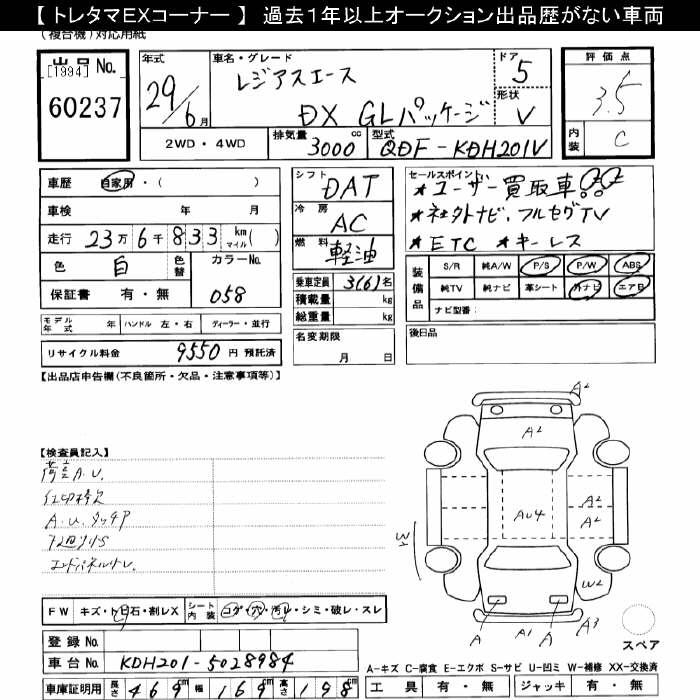 【 トレタマEXコーナー 】 過去1年以上オークション出品歴がない車両
(複合機)対応用紙
出品 No.
[1994]
60237
年式
29/6月
車名・グレード
レジアスエース
DX GLパッケージ
ドア 5
形状 V
2WD・4WD
排気量 3000 cc
型式 QDF-KDH201V
評価点
3.5
内装 C
車歴 自家用・( )
車検 年 月
走行 23万6千833 km マイル( )
色 白 色替
カラーNo. 058
保証書 有・無
シフト DAT
冷房 AC
燃料 軽油
乗車定員 3(6)名
積載量 kg
総重量 kg
名変期限
月 日
セールスポイント
★ユーザー買取車!!
★社外ナビ、フルセグTV
★ETC ★キーレス
装備品
S/R 純A/W P/S P/W ABS
純TV 純ナビ 革シート 外ナビ エアB
ナビ型番:
後日品
モデル年式 年 ハンドル 左・右 ディーラー・並行
リサイクル料金 9550 円 預託済
【出品店申告欄(不良箇所・欠品・注意事項等)】
【検査員記入】
A.U.
A.U. タッチP
エンドパネル
A2
A2
AU4
A2
A2
W2
W1
A
A1
A
A3
スペア
FW キズ・飛石・割レX シート内装 コゲ・穴・汚レ・シミ・破レ・スレ
登録 No.
車台 No. KDH201-5028984
車庫証明用 長さ 469cm 幅 169cm 高さ 198cm
A-キズ C-腐食 E-エクボ S-サビ U-凹ミ W-補修 XX-交換済
工具 有・無 ジャッキ 有・無